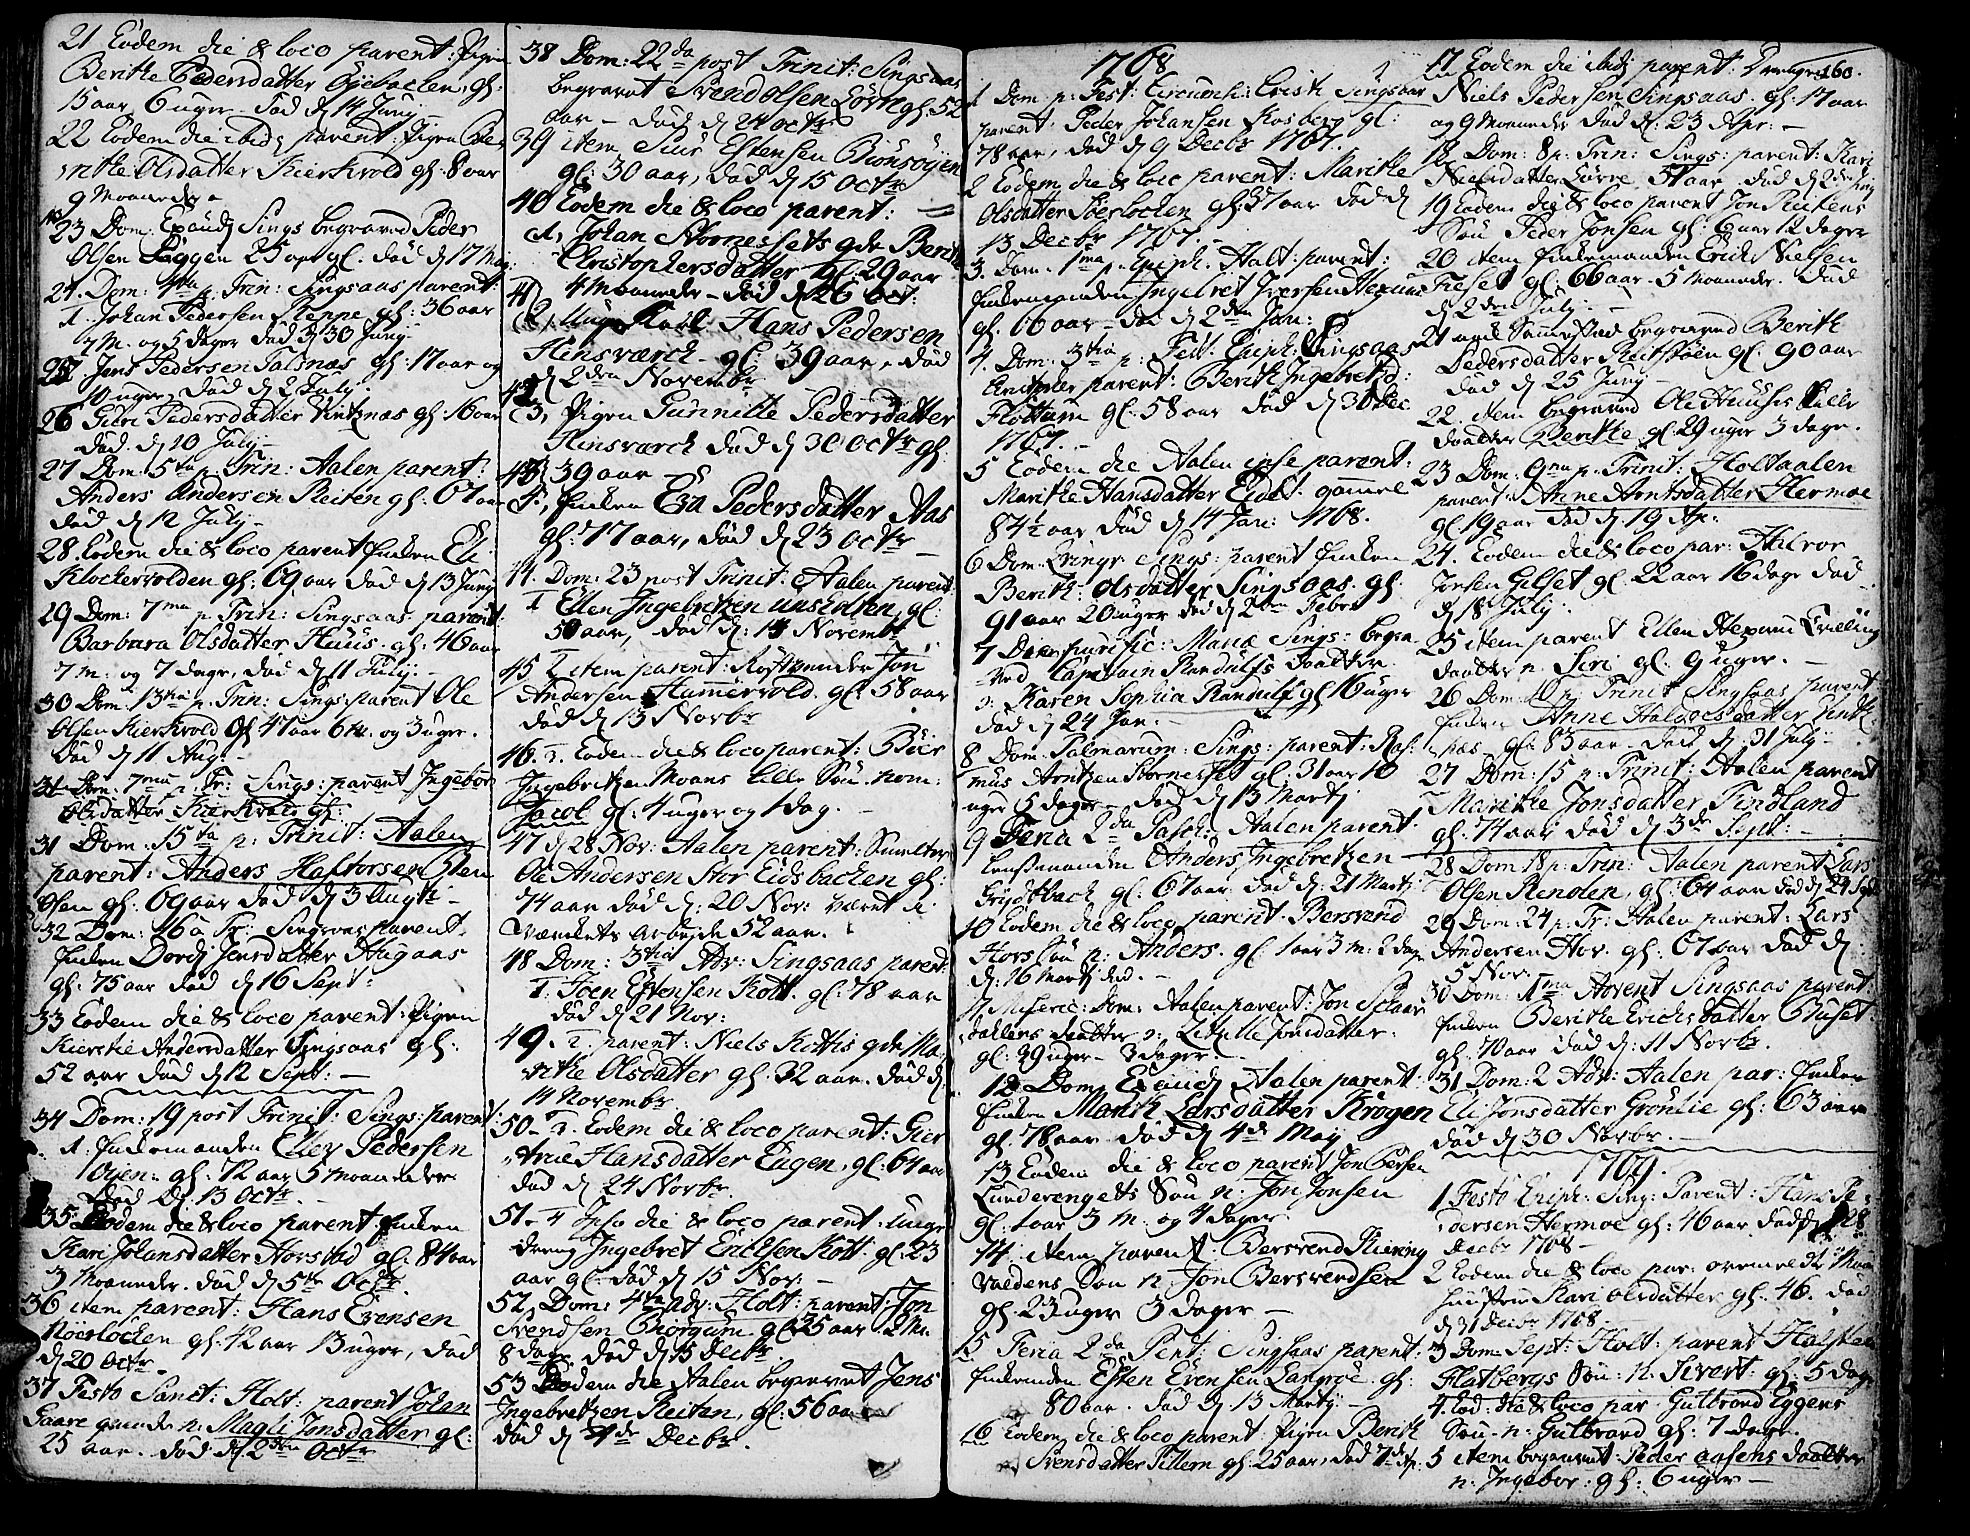 21 Eodem die & loco parent: Pigen
Berithe Pedersdatter Øyebachen, gl:
15 aar 6 uger. død d 14 Juny
22 Eodem die ibid: parent: Pigen Be-
rithe Olsdatter Kierkvold gl: 8 aar
9 Moaneder.
23 Dom: Exaudj Sings begraved Peder
Olsen 25 aar gl. død d 17 May
24. Dom: 4ta p. Trin: Singsaas parent:
1. Johan Pedersen Reppe gl: 36 aar
7 M. og 5 dager død d 30 Junij
25 Jens Pedersen Talsnæs gl: 17 aar og
10 uger, død d 2 July.
26 Siri Pedersdatter Kirknæs gl: 16 aar
død d 10 July.
27 Dom: 5ta p. Trin: Aalen parent:
Anders Andersen Reiten gl: 67 aar
død d 12 July.
28. Eodem die & loco parent Enken Eli
Klockervolden gl: 69 aar død d 13 Juny
29 Dom: 7ma p. Trin: Singsaas parent:
Barbara Olsdatter Huus gl: 46 aar
7 m: og 7 dage, død d 11 July.
30 Dom: 13tia p. Trin: Sings: parent Ole
Olsen Kierkvold gl 47 aar 6 M. og 3 uger.
død d 11 Aug:
31 Dom. 7ma p. Tr: Sings: parent Ingebor
Olsdatter Kierkvold gl:
31 Dom: 15ta p: Trinit: Aalen
parent: Anders Haftorsen
Øsen gl: 69 aar død d 3 Augti
32 Dom: 16 a Tr: Singsaas parent.
Enken Dordi Jensdatter Haugaas
gl: 75 aar død d 16 Sept:
33 Eodem die & loco parent: Pigen
Kierstie Andersdatter Singsaas gl:
52 aar død d 12 Sept:
34 Dom: 19 post Trinit: Sings: parent
1. Enkemanden Ellev Pedersen
Øyen: gl: 72 aar 5 Moaneder
død d: 13 Octr.
35 Eodem die & loco parent: Enken
Kari Johansdatter Horstad gl: 84 aar
3 Moaneder. død d 5te Octr.
36 item parent: Hans Evensen
gl: 42 aar 13 uger, død
d 20 Octr.
37 Festo Sanct: Holt: parent Johan
Gaare qvinde n: Magli Jonsdatter gl:
25 aar. død d 2den Octr
38 Dom: 22da post Trinit: Singsaas
begravet Svend Olsen gl: 52
aar - død d 24 Octr
39 item Siur Estensen Biønsøyen
gl: 30 aar, død d 15 Octr
40 Eodem die & loco parent:
(1, Johan Stornessets qde Berith
Christophersdatter gl: 29 aar
4 Moaneder - død d 26 Oct:
41
(2, Ung Karl Hans Pedersen
Hinsværch - gl: 39 aar, død
d 2den Novembr
42
(3, Pigen Gunnille Pedersdatter
Hinsværch død d 30 Octr gl
39 aar
43
4, Enken Eva Pedersdatter Aas
gl: 77 aar, død d 23 Octr
44. Dom: 23 post Trinit: Aalen parent:
1 Ellen Ingebritzen gl:
50 aar, død d: 14 Novembr
45 item parent: Jon
Andersen Hammervold. gl: 58 aar
død d 13 Novbr
46. 2. Eodem die & loco parent:
Ingebritzen Moans lille Søn nom:
Jacob gl: 4 uger og 1 dag.
47 d 28 Nov: Aalen parent: Smelter
Ole Andersen Stor Eidsbachen gl:
74 aar død d: 20 Nov: været i
Værckets Arbeyde 52 aar.
48 Dom: 3tia Adv: Singsaas parent:
1. Joen Estensen Kott. gl: 78 aar
død d 21 Nov:
49. 2. parent: Niels Kottis qde Ma-
rithe Olsdatter gl: 32 aar. død d
14 Novembr
50 - 3. Eodem die & loco parent:
Hansdatter Engen, gl: 64 aar
død d 24 Novbr.
51. 4 Ipso die & loco parent: unge
dreng Ingebret Kott: gl. 23
aar gl: død d 15 Nov:
52. Dom: 4ta Adv: Holt: parent: Jon
Svendsen gl 25 aar 2 M.
8 dage død d 15 Decbr
53 Eodem die Aalen begravet Jens
Ingebretzen Reiten, gl: 56 aar
død d 4de Decbr.
1768
1 Dom. p: Fest: Circumci: Cristi Singsaas
parent: Peder Johansen Kosberg gl:
78 aar, død d 9 Decbr 1767.
2 Eodem die & loco parent: Marithe
Olsdatter gl: 37 aar død d
13 Decbr 1767.
3. Dom. 1ma p. Epiph. Holt: parent:
Enkemanden Ingebret Iversen Hexum
gl. 66 aar - død d 2den Jan:
4. Dom: 3tia p: Fest. Epiph: Singsaas
parent: Berith Ingebretsd:
Flottum gl: 58 aar død d 30 Dec
1767.
5 Eodem die Aalen ipse parent:
Marithe Hansdatter Eidet. gamel
84½ aar død d 14 Jan: 1768.
6 Dom. Sings: parent Enken
Berith: Olsdatter Singsaas gl:
91 aar 20 uger død d 2den Febr
7 Die purific: Mariæ Sings: begra-
ved Capitain Randulfs daatter
n: Karen Sophia Randulf gl 16 uger
død d 24 Jan.
8 Dom. Palmarum: Sings: parent: Ras-
mus Arntzen Stornesset gl: 31 aar 10
uger 5 dage - død d 13 Martj
9 Feria 2da Pasch: Aalen parent
Anders Ingebretzen
Grydtbach gl: 67 aar. død d: 21 Martj
10 Eodem die & loco parent: Bersvend
Hors søn n: Anders. gl: 1 aar 3 m: 2 dage
d: 16 Martj død.
11 Miseric: Dom: Aalen parent: Jon
dallens daatter n: Jonsdatter.
gl: 39 uger - 3 dager.
12 Dom. Exaudj Aalen parent:
Enken Marith Larsdatter Krogen
gl: 78 aar død d 4de May
13 Eodem die & loco parent Jon
Lunderengets Søn n: Jon Jonsen
gl: 1 aar 3 m: og 4 dager.
14. item parent: Bersvend
valdens Søn n: Jon Bersvendsen
gl: 23 uger 3 dager
15 Feria 2da Pent: Singsaas parent:
Enkemden Esten Evensen Langøe gl:
80 aar. død d 13 Martij
16 Eodem die & loco parent: Pigen Berith
Svensdatter gl: 25 aar, død 7de Ap:
160.
17 Eodem die ibid: parent: Drengen
Niels Pedersen Singsaas. gl: 17 aar
og 9 Moaneder død d: 23 Apr:
18 Dom: 8 p: Trin: Sings: parent: Kari
Nielsdatter 51 aar død d 2den July
19 Eodem die & loco parent Jon
Søn Peder Jonsen gl: 6 aar 12 dager
20 item Enkemanden Erich Nielsen
gl: 66 aar. 5 Moaneder. død
d 2den July
21 begraved Berith
Pedersdatter gl: 90 aar
død d 25 Juny
22. item begraved Ole Huuses lille
daatter Berithe gl: 29 uger 3 dage.
23 Dom: 9na p: Trinit: Holtaalen
parent: Anne Arntsdatter Hermoe
gl 19 aar død d. 19 Ap:
24. Eodem die & loco par: Halvor
Jonsen Gilset gl: 22 aar 16 dage død
d 18 July.
25 item parent Ellen Hexum Tvilling
daatter n: Siri gl: 9 uger.
26 Dom: 10 p: Trinit Singsaas parent
Enken Anne Halvorsdatter Kirk-
næs gl: 83 aar. død d. 31 July
27 Dom: 15 p: Trinit: Aalen parent
Marithe Jonsdatter Findland
gl: 74 aar død d 3de Sept:
28 Dom 18 p: Trin: Aalen parent Lars
Olsen Renolen, gl: 64 aar død d 24 Sept
29 Dom: 24 p: Tr: Aalen parent: Lars
Andersen Hov. gl: 67 aar død d:
5 Nov:
30 Dom: 1ma Advent Singsaas parent
Enken Berithe Erichsdatter Buset
gl: 70 aar død d: 11 Novbr.
31 Dom: 2 Adv: Aalen par: Enken
Eli Jonsdatter Grønlie gl: 63 aar
død d 30 Novbr.
1769.
1 Festo Epiph: Sing: Parent: Hans Pe-
dersen Hermoe gl: 46 aar død d 28
Decbr 1768
2 Eodem die & loco par: ovenmeldte Mands
Hustrue Kari Olsdatter gl: 46. død
d 31 Decbr 1768.
3 Dom: Sept: Holt: parent Halsten
Flatbergs søn: n: Sivert: gl: 5 dage
4. Eod: die & loco par: Gulbrand Eggens
Søn n: Gulbrand gl: 7 dage.
5 item begravet: Peder Aasens daatter
n: Ingebor: gl: 6 uger